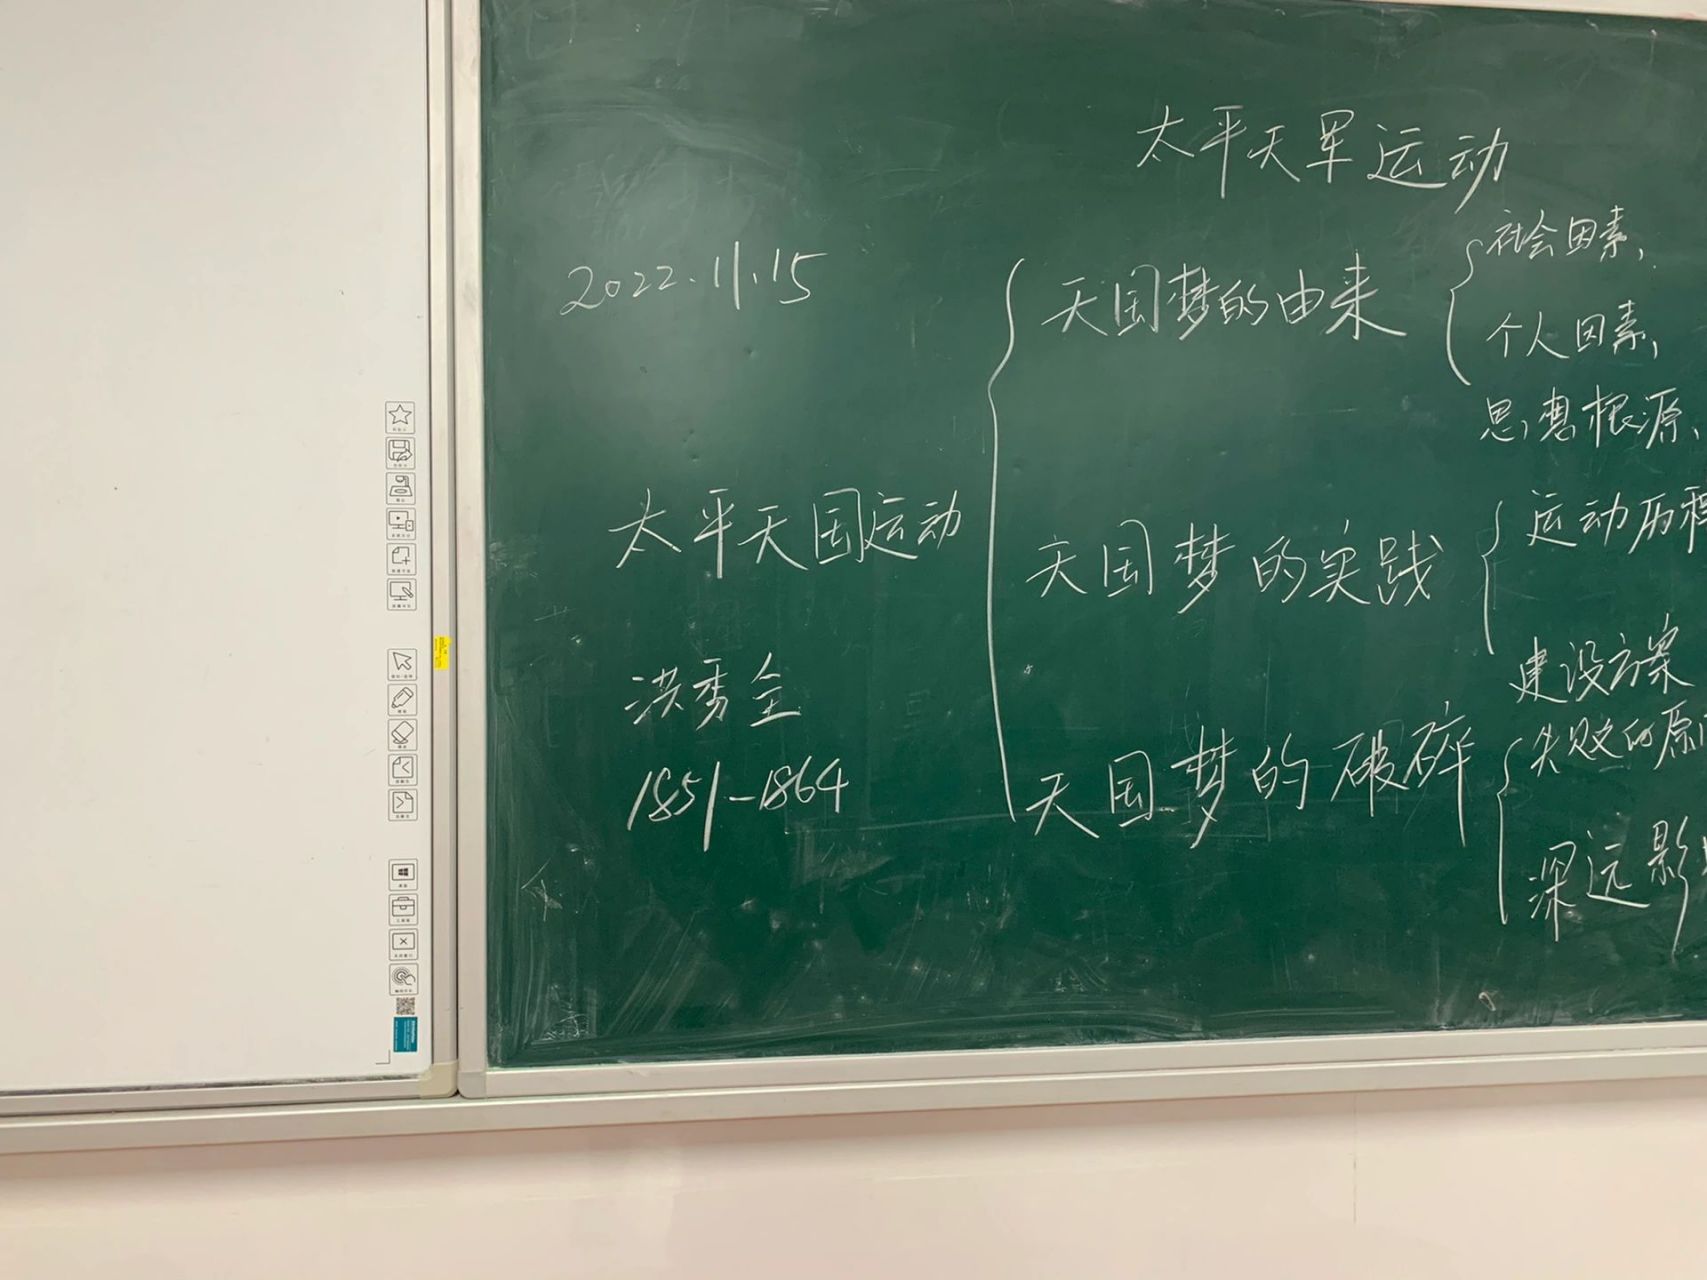 太平天军运动
2022.11.15
天国梦的由来
社会因素,
个人因素,
思想根源、
太平天国运动
天国梦的实践
运动历程
建设方案
洪秀全
1851-1864
天国梦的破碎
失败的原
深远影